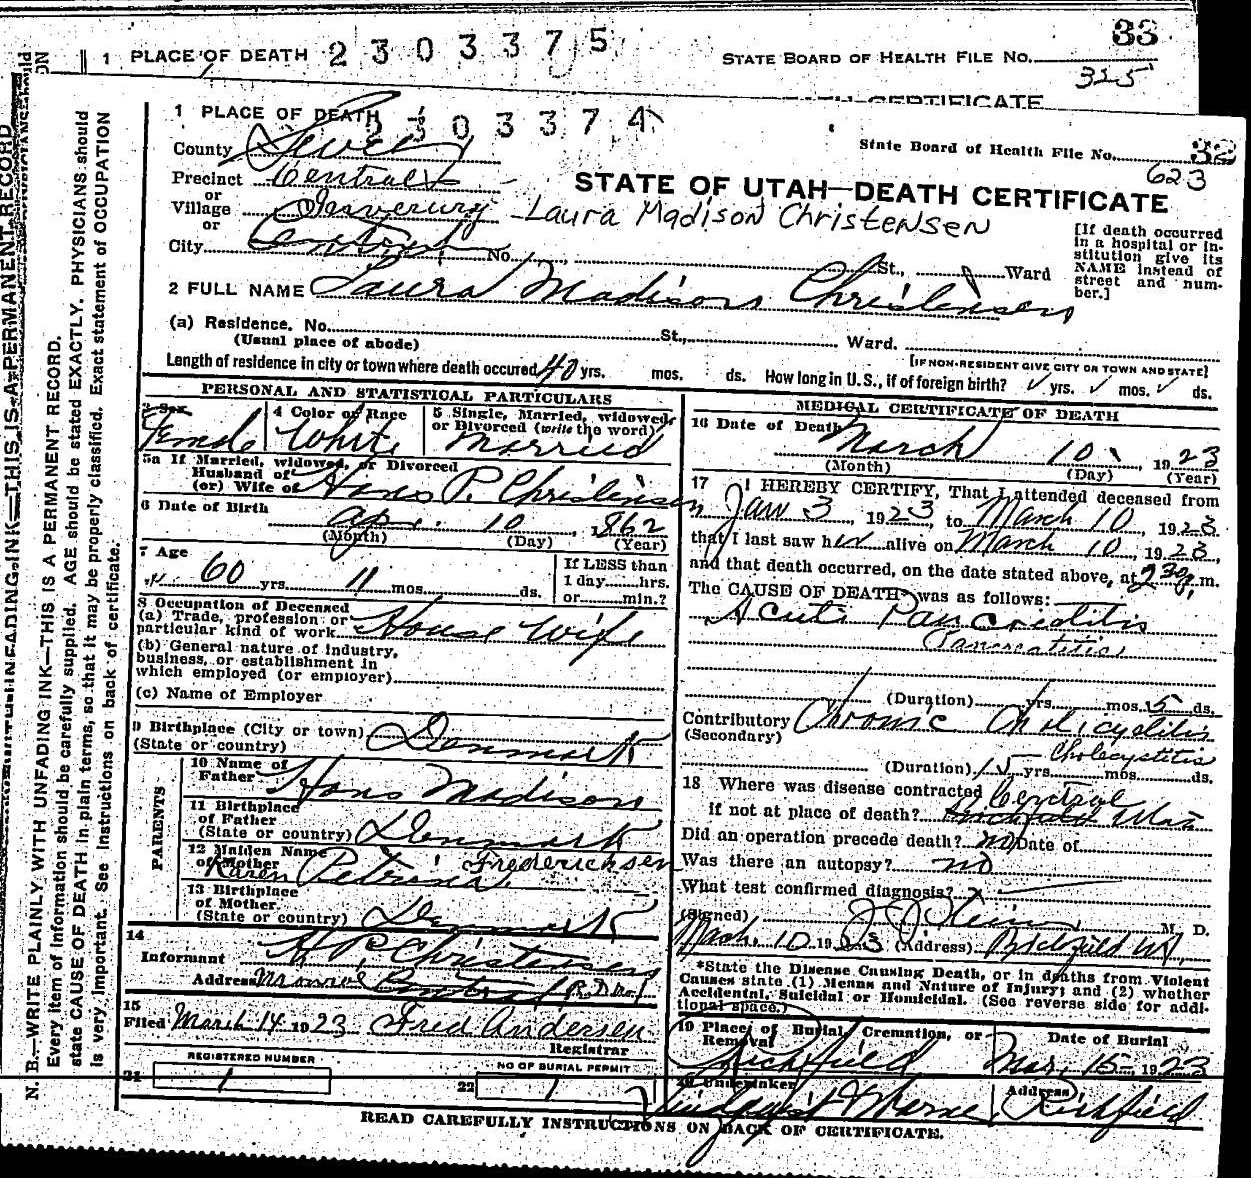 33
1 PLACE OF DEATH 2303375
STATE BOARD OF HEALTH FILE No.
325
CERTIFICATE
1 PLACE OF DEATH
2303374
County Sevier
State Board of Health File No. 32
623
Precinct Central
or
STATE OF UTAH—DEATH CERTIFICATE
Village Inverury
Laura Madison Christensen
or
City Central No. St., Ward
[If death occurred in a hospital or institution give its NAME instead of street and number.]
2 FULL NAME Laura Madison Christensen
(a) Residence. No. St., Ward.
(Usual place of abode)
[IF NON-RESIDENT GIVE CITY OR TOWN AND STATE]
Length of residence in city or town where death occured 40 yrs. mos. ds. How long in U.S., if of foreign birth? yrs. mos. ds.
PERSONAL AND STATISTICAL PARTICULARS
3 Sex
Female
4 Color or Race
White
5 Single, Married, widowed, or Divorced (write the word)
Married
5a If Married, widowed, or Divorced
Husband of
(or) Wife of Hans P. Christensen
6 Date of Birth
Apr. 10 1862
(Month) (Day) (Year)
7 Age
60 yrs. 11 mos. ds.
If LESS than
1 day hrs.
or min.?
8 Occupation of Deceased
(a) Trade, profession or
particular kind of work House Wife
(b) General nature of industry,
business, or establishment in
which employed (or employer)
(c) Name of Employer
9 Birthplace (City or town)
(State or country) Denmark
PARENTS
10 Name of
Father Hans Madison
11 Birthplace
of Father
(State or country) Denmark
12 Maiden Name
of Mother
Karen Petrina Frederichsen
13 Birthplace
of Mother.
(State or country) Denmark
14
Informant H P. Christensen
Address Monroe Central R.D. No 1
15
Filed March 14 1923 Fred Andersen
Registrar
REGISTERED NUMBER
21 1
NO OF BURIAL PERMIT
22 1
MEDICAL CERTIFICATE OF DEATH
16 Date of Death
March 10, 1923
(Month) (Day) (Year)
17 I HEREBY CERTIFY, That I attended deceased from
Jan 3, 1923, to March 10, 1923,
that I last saw her alive on March 10, 1923,
and that death occurred, on the date stated above, at 230 p. m.
The CAUSE OF DEATH* was as follows:
Acute Pancreditis
Pancreatitis
(Duration) yrs. mos. 5 ds.
Contributory Chronic Cholicyditis
(Secondary)
Cholecystitis
(Duration) 15 yrs. mos. ds.
18 Where was disease contracted Central
if not at place of death? Utah
Did an operation precede death? no Date of
Was there an autopsy? no
What test confirmed diagnosis?
(Signed) M. D.
Mach, 10 1923 (Address) Richfield Ut,
*State the Disease Causing Death, or in deaths from Violent
Causes state (1) Means and Nature of Injury; and (2) whether
Accidental, Suicidal or Homicidal. (See reverse side for additional space.)
19 Place of Burial, Cremation, or
Removal
Richfield
Date of Burial
Mar, 15 1923
20 Undertaker
Address
Richfield
READ CAREFULLY INSTRUCTIONS ON BACK OF CERTIFICATE.
N. B.—WRITE PLAINLY WITH UNFADING INK—THIS IS A PERMANENT RECORD.
Every item of information should be carefully supplied. AGE should be stated EXACTLY. PHYSICIANS should
state CAUSE OF DEATH in plain terms, so that it may be properly classified. Exact statement of OCCUPATION
is very important. See Instructions on back of certificate.
UNFADING INK—THIS IS A PERMANENT RECORD